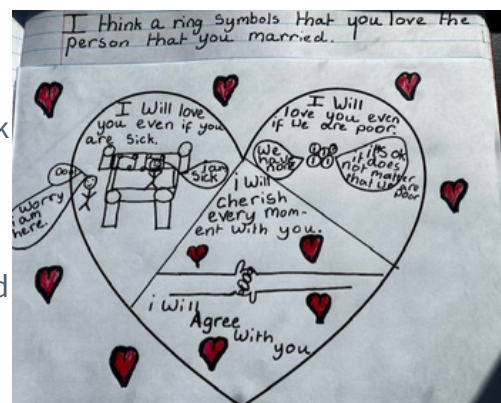 I think a ring symbols that you love the
person that you married.
I Will love
you even if you
are sick.
i am
sick
i worry
i am
here.
I Will
love you even
if we are poor.
We
have
none
it's ok
it does
not matter
that we are
poor
i Will
cherish
every mom-
ent with you.
i Will
Agree
With
you
k
d